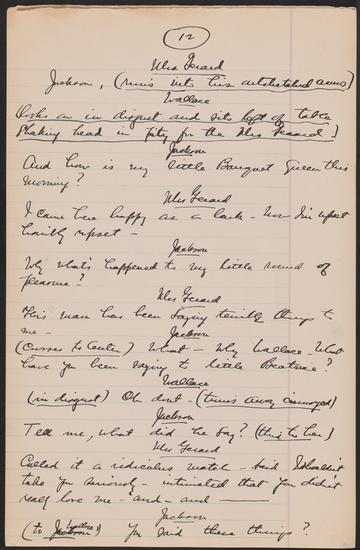 12
Mrs Gerard
Jackson, (runs into his outstretched arms)
Wallace
(looks on in disgust and sits left of table
shaking head in pity for the Mrs Gerard.)
Jackson
And how is my little Banquet Queen this
morning?
Mrs Gerard
I came here happy as a lark - now I'm upset
horribly upset -
Jackson
Why what's happened to my little round of
pleasure?
Mrs Gerard
This man has been saying terrible things to
me -
Jackson
(Crosses to Center) What - Why Wallace - What
have you been saying to little Beatrice?
Wallace
(in disgust) Oh don't - (turns away annoyed)
Jackson
Tell me, what did he say? (this to her)
Mrs Gerard
Called it a ridiculous match - said I shouldn't
take you seriously - intimated that you didn't
really love me - and - and
Jackson
(to Wallace) You said these things?